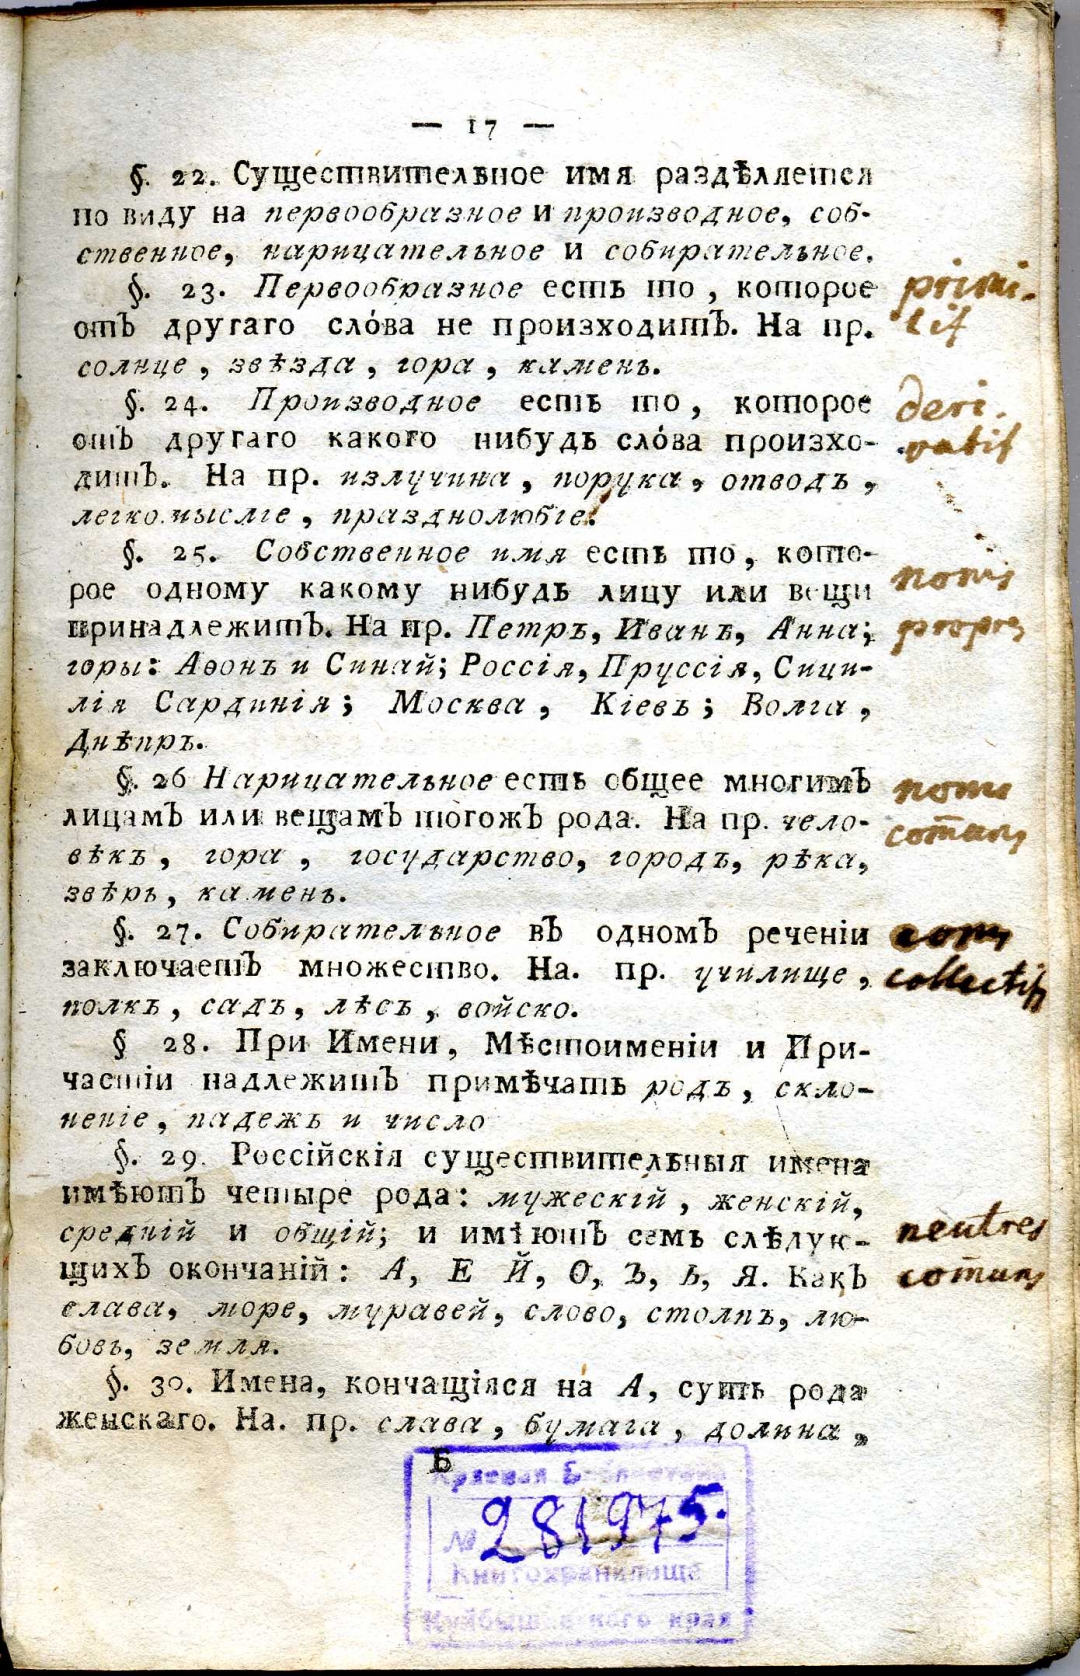 — 17 —
§. 22. Существительное имя раздѣляется
по виду на первообразное и производное, соб-
ственное, нарицательное и собирательное.
§. 23. Первообразное есть то, которое
отъ другаго сло́ва не произходитъ. На пр.
солнце, звѣзда, гора, камень.
primi-
tif
§. 24. Производное есть то, которое
отъ другаго какого нибудь сло́ва произхо-
дитъ. На пр. излучина, порука, отводъ,
легкомысліе, празднолюбіе.
deri-
vatif
§. 25. Собственное имя есть то, кото-
рое одному какому нибудь лицу или вещи
принадлежитъ. На пр. Петръ, Иванъ, Анна;
горы: Аѳонъ и Синай; Россія, Пруссія, Сици-
лія Сардинія; Москва, Кіевъ; Волга,
Днѣпръ.
noms
propres
§. 26 Нарицательное есть общее многимъ
лицамъ или вещамъ тогожъ рода. На пр. чело-
вѣкъ, гора, государство, городъ, рѣка,
звѣрь, камень.
noms
com̄uns
§. 27. Собирательное въ одномъ реченіи
заключаетъ множество. На. пр. училище,
полкъ, садъ, лѣсъ, войско.
collectifs
§ 28. При Имени, Мѣстоименіи и При-
частіи надлежитъ примѣчать родъ, скло-
неніе, падежъ и число
§. 29. Россійскія существительныя имена
имѣютъ четыре рода: мужескій, женскій,
средній и общій; и имѣютъ семь слѣдую-
щихъ окончаній: А, Е Й, О, Ъ, Ь, Я. Какъ
слава, море, муравей, слово, столпъ, лю-
бовь, земля.
neutres
com̄uns
§. 30. Имена, кончащіяся на А, суть рода
женскаго. На. пр. слава, бумага, долина,
Б
Краевая Библиотека
№ 281975.
Книгохранилище
Куйбышевского края